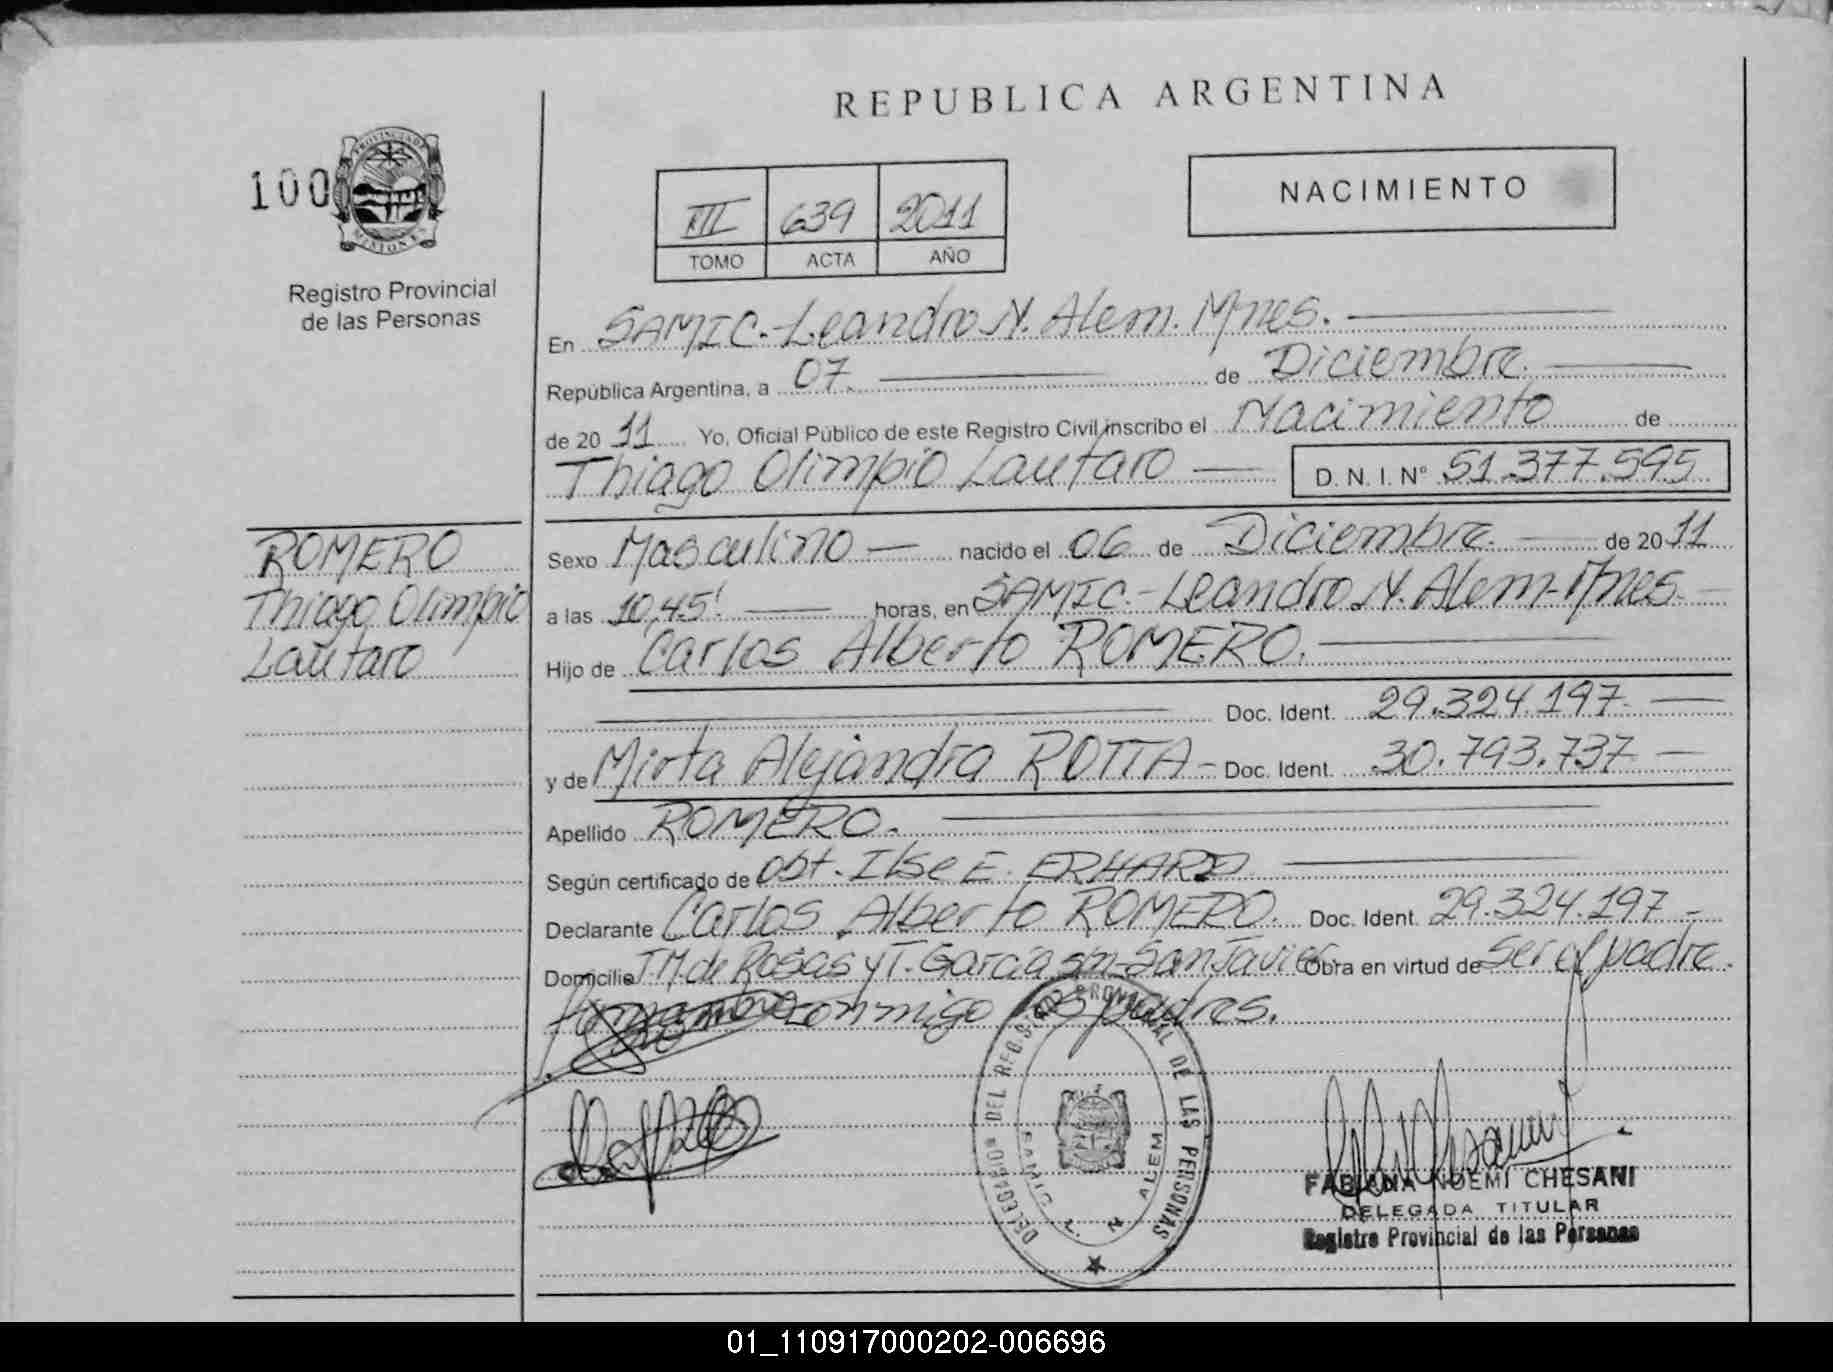 REPUBLICA ARGENTINA
100
PROVINCIA DE
MISIONES
Registro Provincial
de las Personas
NACIMIENTO
III 639 2011
TOMO ACTA AÑO
En SAMIC.-Leandro N. Alem. Mnes.
República Argentina, a 07. de Diciembre.
de 20 11 Yo, Oficial Público de este Registro Civil inscribo el Nacimiento de
Thiago Olimpio Lautaro D. N. I. Nº 51.377.595
ROMERO
Thiago Olimpio
Lautaro
Sexo Masculino nacido el 06 de Diciembre. de 20 11
a las 10,45' horas, en SAMIC.-Leandro N. Alem-Mnes.
Hijo de Carlos Alberto ROMERO.
Doc. Ident. 29.324.197
y de Mirta Alejandra ROTTA - Doc. Ident. 30.793.737
Apellido ROMERO.
Según certificado de Obt. Ilse E. ERHARD
Declarante Carlos Alberto ROMERO. Doc. Ident. 29.324.197 -
Domicilio J.M. de Rosas y T. Garcia s/n-San Javier Obra en virtud de ser el padre.
conmigo los padres.
DELEGACION DEL REG. PROVINCIAL DE LAS PERSONAS
SAMIC L. N. ALEM
FABIANA NOEMI CHESANI
DELEGADA TITULAR
Registro Provincial de las Personas
01_110917000202-006696